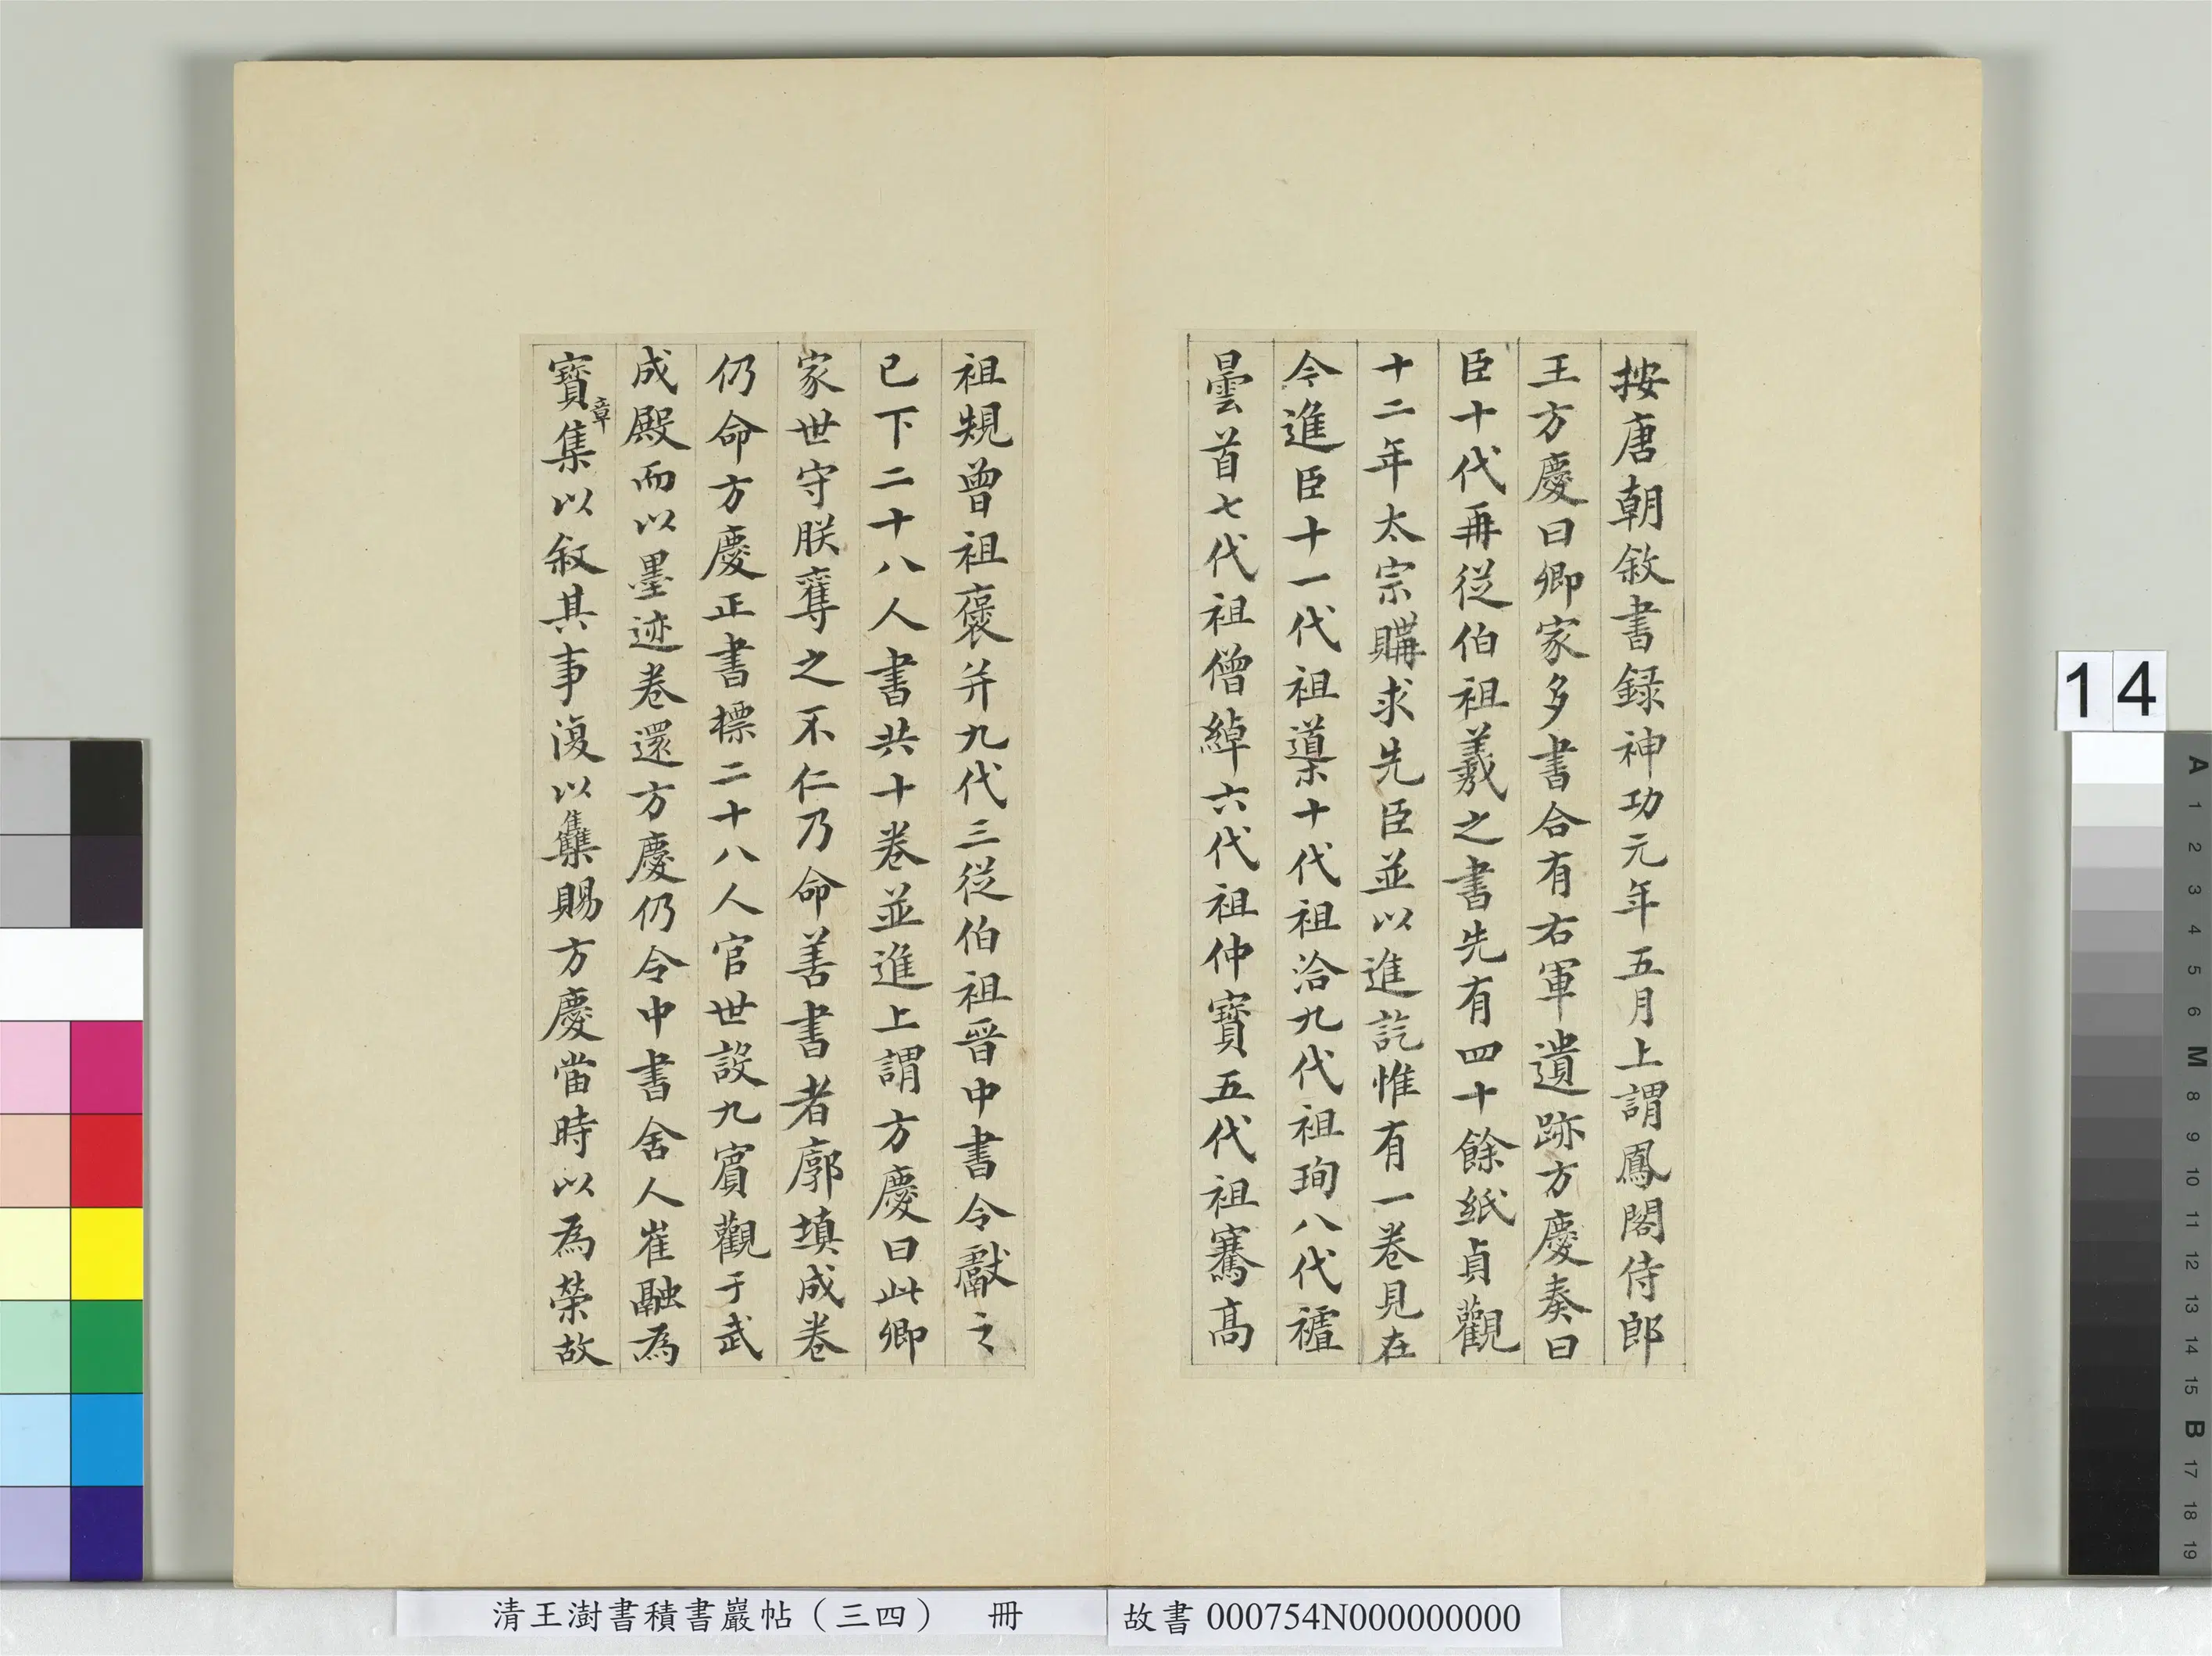 按唐朝敘書録神功元年五月上謂鳳閣侍郎
王方慶曰卿家多書合有右軍遺跡方慶奏曰
臣十代再從伯祖羲之書先有四十餘紙貞觀
十二年太宗購求先臣並以進訖惟有一卷見在
今進臣十一代祖導十代祖洽九代祖珣八代祖
曇首七代祖僧綽六代祖仲寶五代祖騫高
祖規曾祖褒并九代三從伯祖晉中書令獻之
已下二十八人書共十卷並進上謂方慶曰此卿
家世守朕奪之不仁乃命善書者廓填成卷
仍命方慶正書標二十八人官世設九賓觀于武
成殿而以墨迹卷還方慶仍令中書舍人崔融為
寶章集以敘其事復以集賜方慶當時以為榮故
14
A 1 2 3 4 5 6 M 8 9 10 11 12 13 14 15 B 17 18 19
清王澍書積書巖帖（三四） 冊
故書 000754N000000000